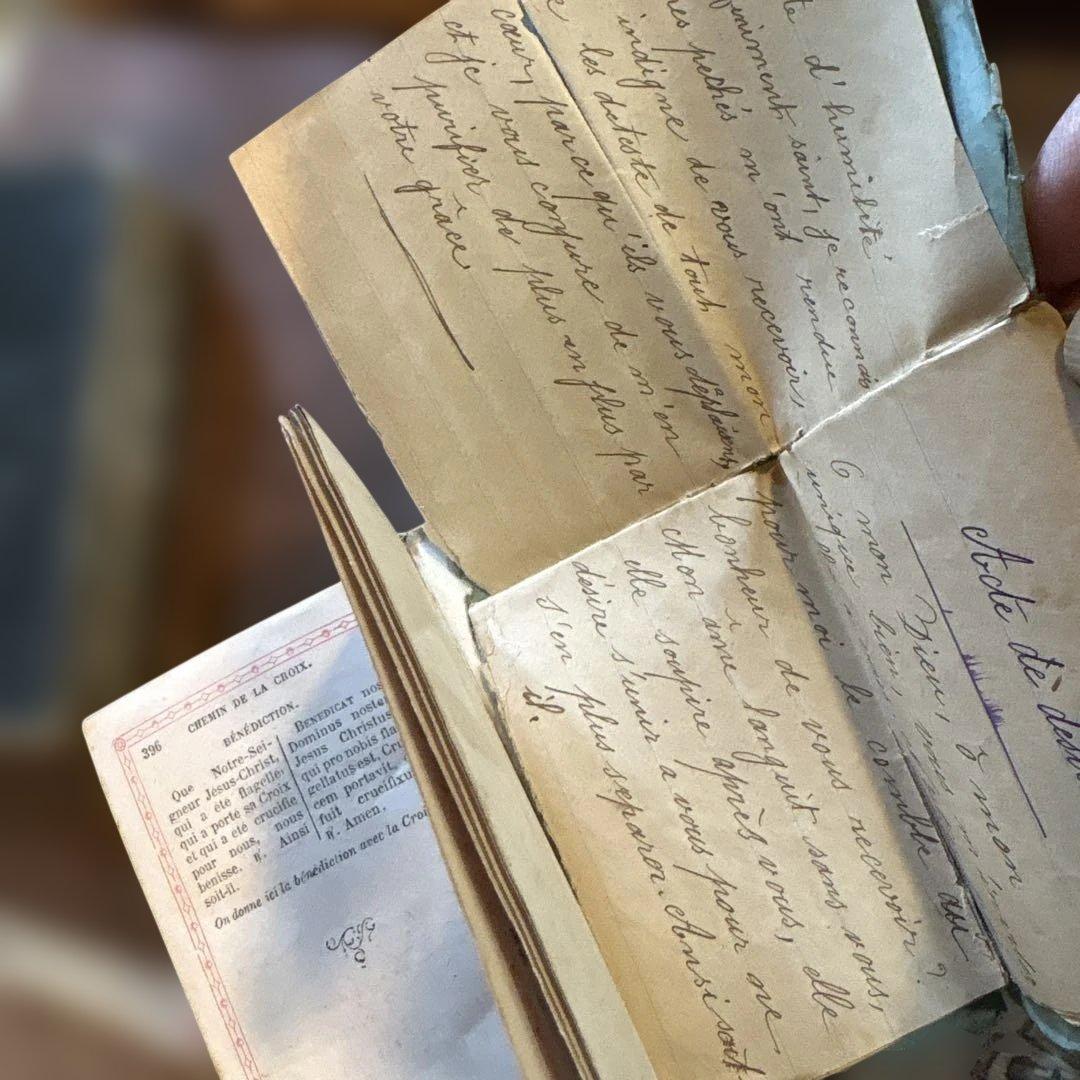 d'humilité
saint, je reconnais
mes pechés m'ont rendue
indigne de vous recevoir,
les déteste de tout mon
cœur, parce qu'ils vous déplaisent,
et je vous conjure de m'en
purifier de plus en plus par
votre grâce
Acte de
O mon Dieu, ô mon
unique bien,
pour moi le comble du
bonheur de vous recevoir ?
Mon ame languit sans vous,
elle soupire après vous, elle
désire s'unir a vous pour ne
s'en plus separer. Ainsi soit-
il.
396 CHEMIN DE LA CROIX.
BÉNÉDICTION.
Que Notre-Sei-
gneur Jésus-Christ,
qui a été flagellé,
qui a porté sa Croix
et qui a été crucifié
pour nous, nous
bénisse. ℟. Ainsi
soit-il.
BENEDICAT nos
Dominus noste
Jesus Christus
qui pro nobis fla
gellatus est, Cru
cem portavit,
fuit crucifixu
℟. Amen.
On donne ici la bénédiction avec la Croi